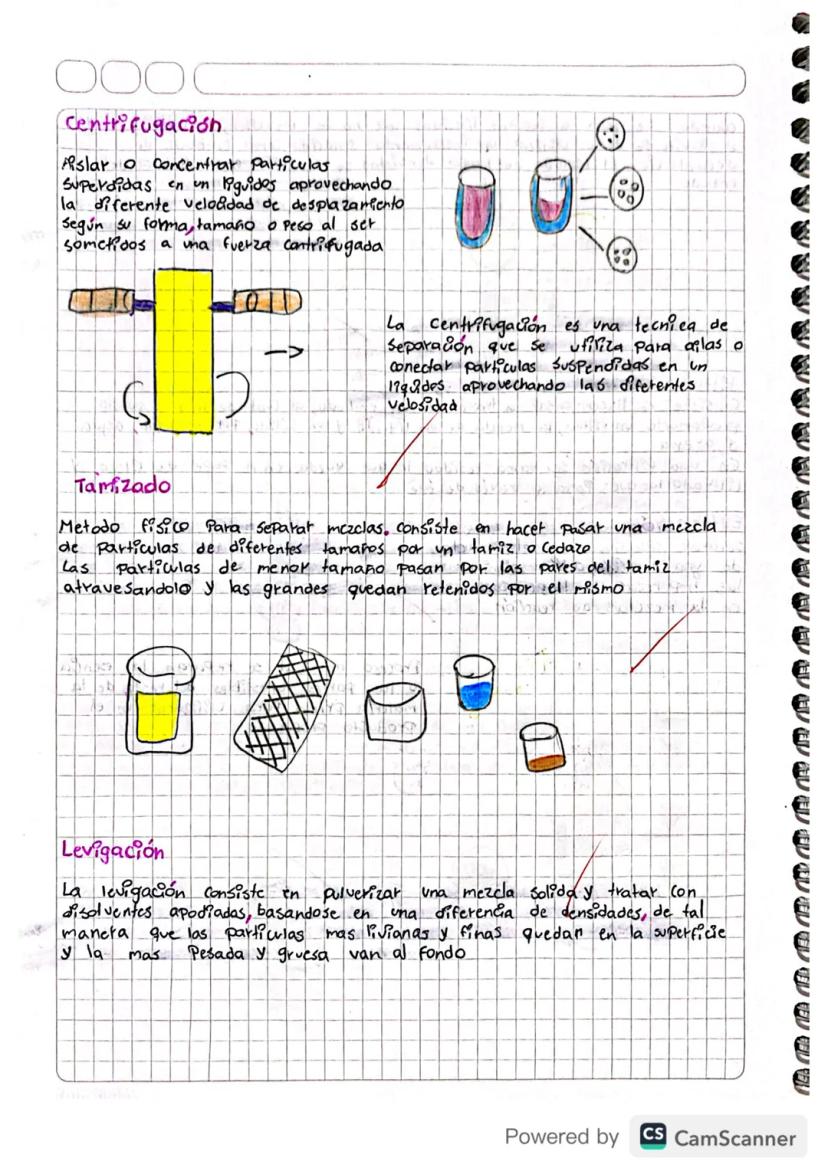 Centrifugación
Aislar o concentrar particulas
superdidas en un liguidos aprovechando
la diferente velosidad de desplazamiento
según su forma, tamaño o peso al ser
sometidos a una fuerza cantrifugada
La centrifugación es una tecnica de
separación que se utiliza para ailas o
conectar particulas suspendidas en un
liquides aprovechando las diferentes
velosidad
Tamizado
Metodo fisico para separar mezclas. consiste en hacer pasar una mezcla
de particulas de diferentes tamaños por un tamiz o cedazo
Las particulas de menor tamaño pasan por las pares del tamiz
atravesandolo y las grandes quedan retenidos por el mismo
Levigación
La levigación consiste en pulverizar una mezcla solida y tratar con
disolventes apodiadas, basandose en una diferencia de densidades, de tal
manera que las particulas mas livianas y finas quedan en la superficie
y la mas pesada y gruesa van al fondo
Powered by CS CamScanner